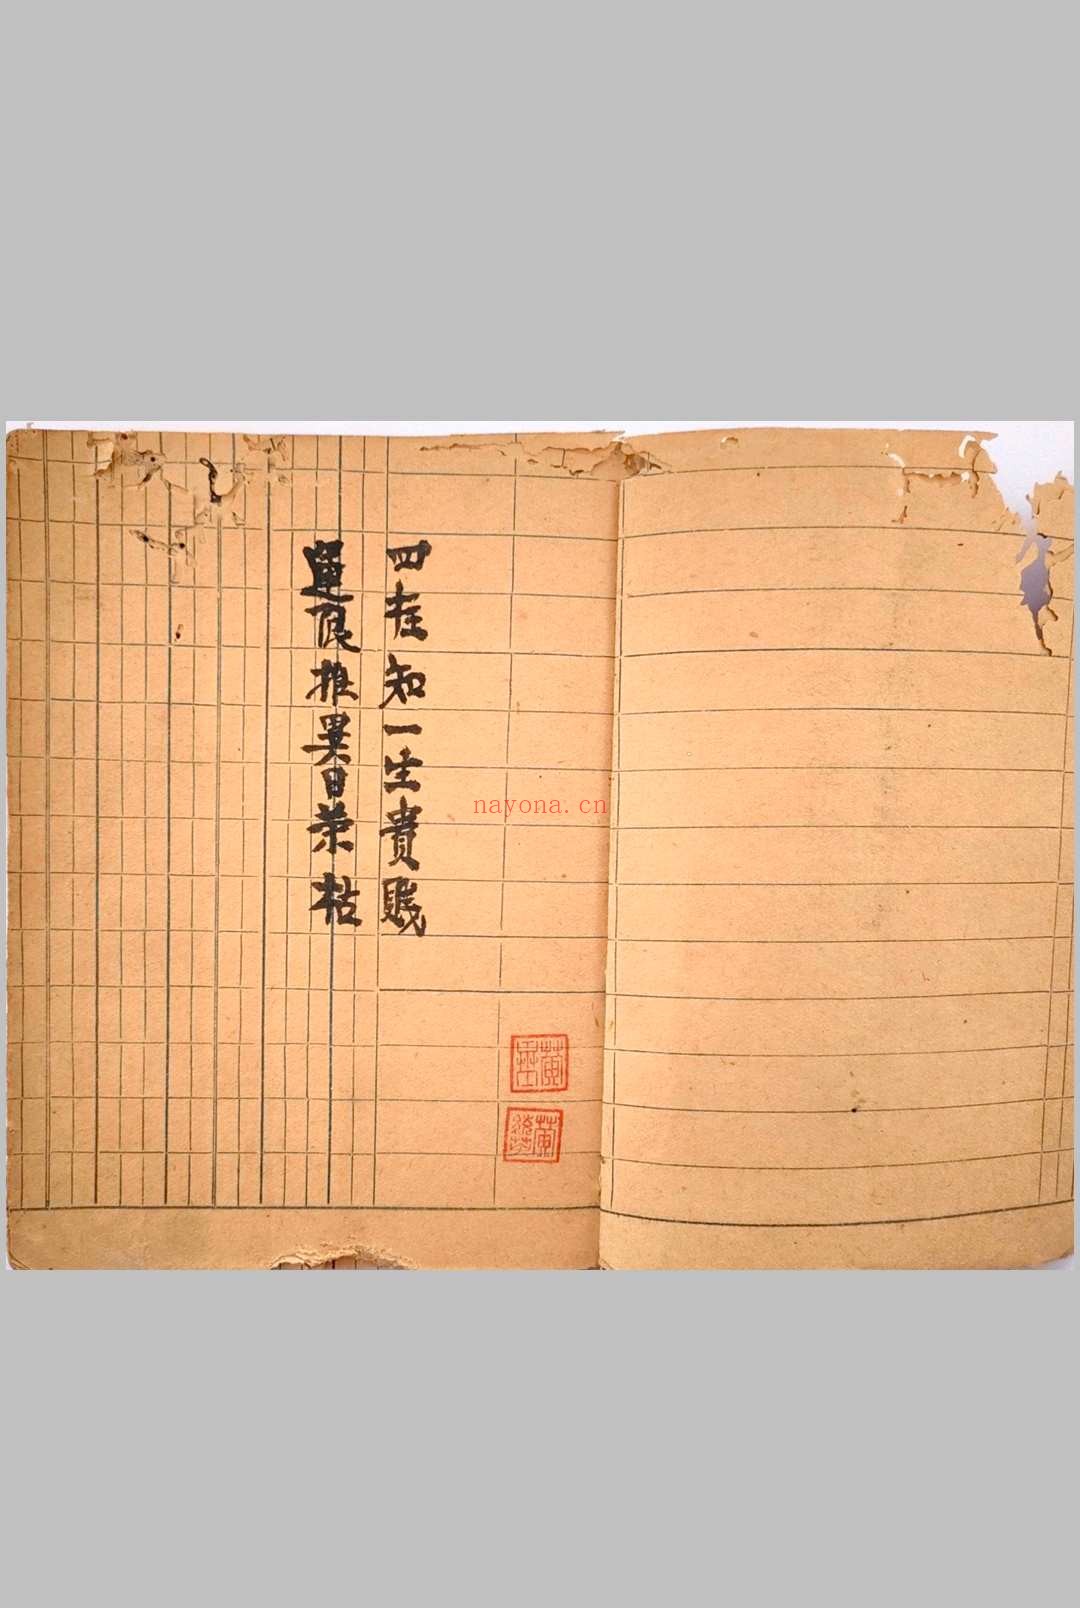 四柱知一生貴賤
運限推異日荣枯
nayona.cn
黄
黄